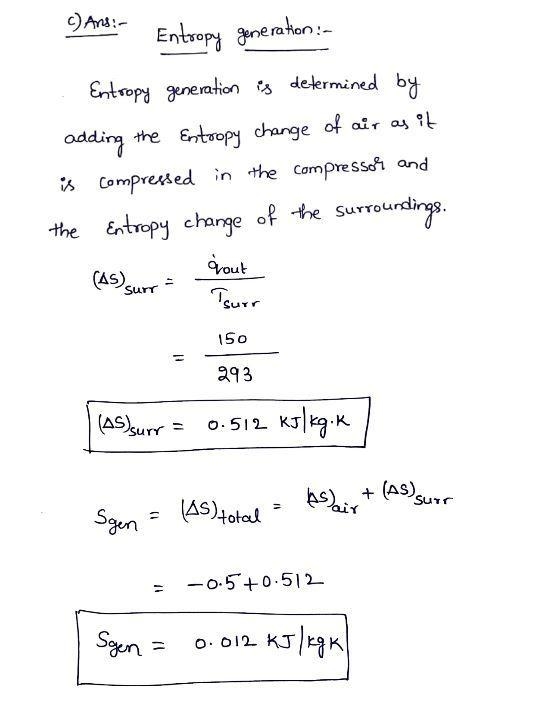 c) Ans:-
Entropy generation:-
Entropy generation is determined by
adding the Entropy change of air as it
is compressed in the compressor and
the Entropy change of the surroundings.
(ΔS)surr = q̇out / Tsurr
= 150 / 293
(ΔS)surr = 0.512 KJ/kg.K
Sgen = (ΔS)total = (ΔS)air + (ΔS)surr
= -0.5+0.512
Sgen = 0.012 KJ/kgK